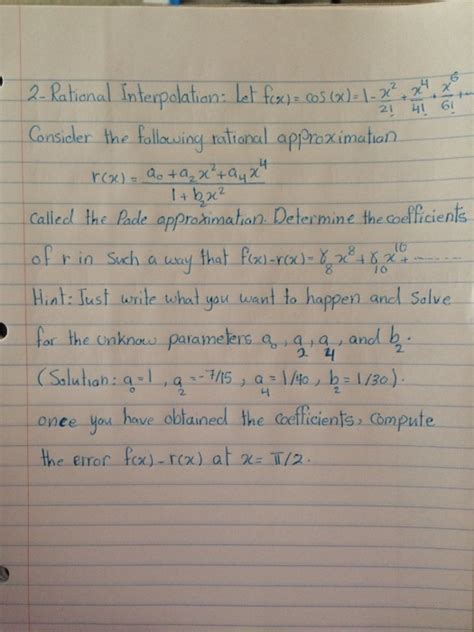 2- Rational Interpolation: Let f(x) = cos(x) = 1 - x²/2! + x⁴/4! + x⁶/6! + ...
Consider the following rational approximation
r(x) = (a₀ + a₂x² + a₄x⁴) / (1 + b₂x²)
called the Pade approximation. Determine the coefficients
of r in such a way that f(x) - r(x) = γ₈ x⁸ + γ₁₀ x¹⁰ + ........
Hint: Just write what you want to happen and solve
for the unknow parameters a₀, a₂, a₄, and b₂.
(Solution: a₀ = 1, a₂ = -7/15, a₄ = 1/40, b₂ = 1/30).
once you have obtained the coefficients, compute
the error f(x) - r(x) at x = π/2.